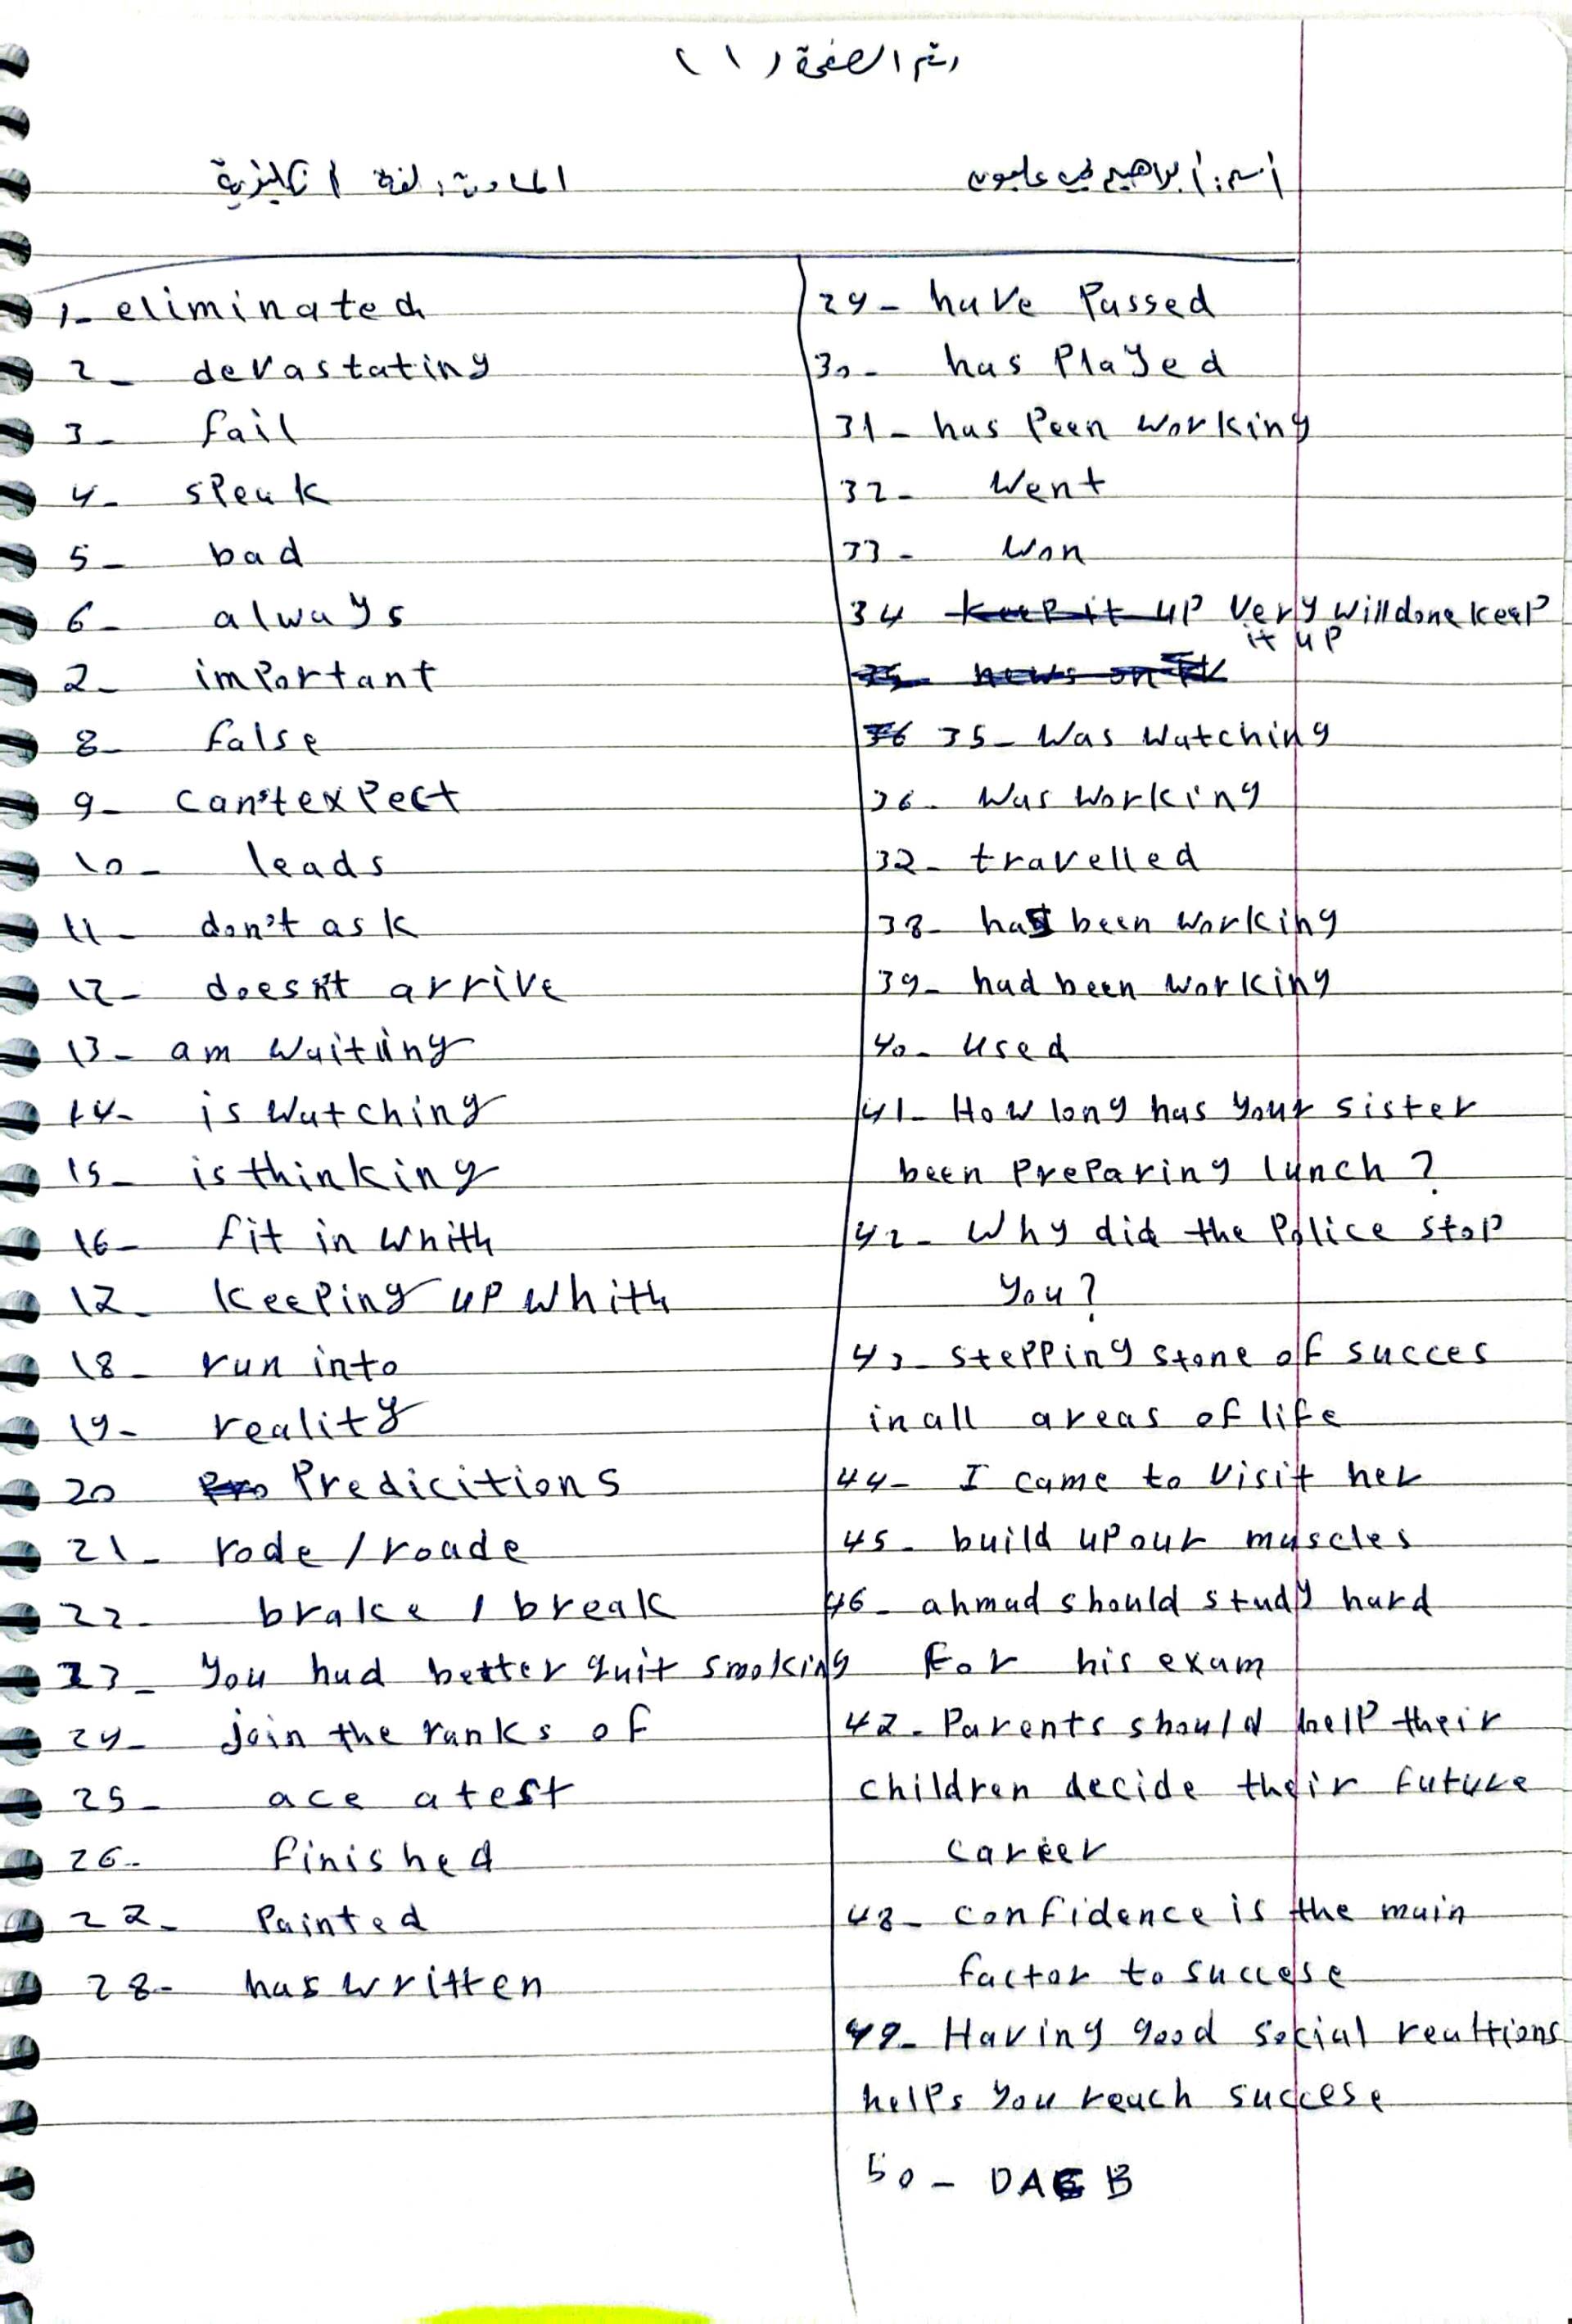 رقم الصفحة (١)
أسم: أبراهيم
المادة: لغة انكليزية
1- eliminated
2- devastating
3- fail
4- speak
5- bad
6- always
7- important
8- false
9- can'texpect
10- leads
11- don't ask
12- doesn't arrive
13- am waiting
14- is watching
15- is thinking
16- fit in whith
17- keeping up whith
18- run into
19- reality
20 Predicitions
21- rode / roade
22- brake / break
23- You had better quit smoking
24- join the ranks of
25- ace a test
26- finished
27- Painted
28- has written
29- have Passed
30- has Played
31- has Peen working
32- Went
33- Won
34 keep it up Very will done keep
it up
35- Was watching
36- Was working
37- travelled
38- has been working
39- had been working
40- used
41- How long has your sister
been Preparing lunch?
42- Why did the Police stop
you?
43- stepping stone of succes
in all areas of life
44- I came to visit her
45- build up our muscles
46- ahmad should study hard
For his exam
47- Parents should help their
children decide their future
career
48- confidence is the main
factor to succese
49- Having good social realtions
helps you reach succese
50- DACB